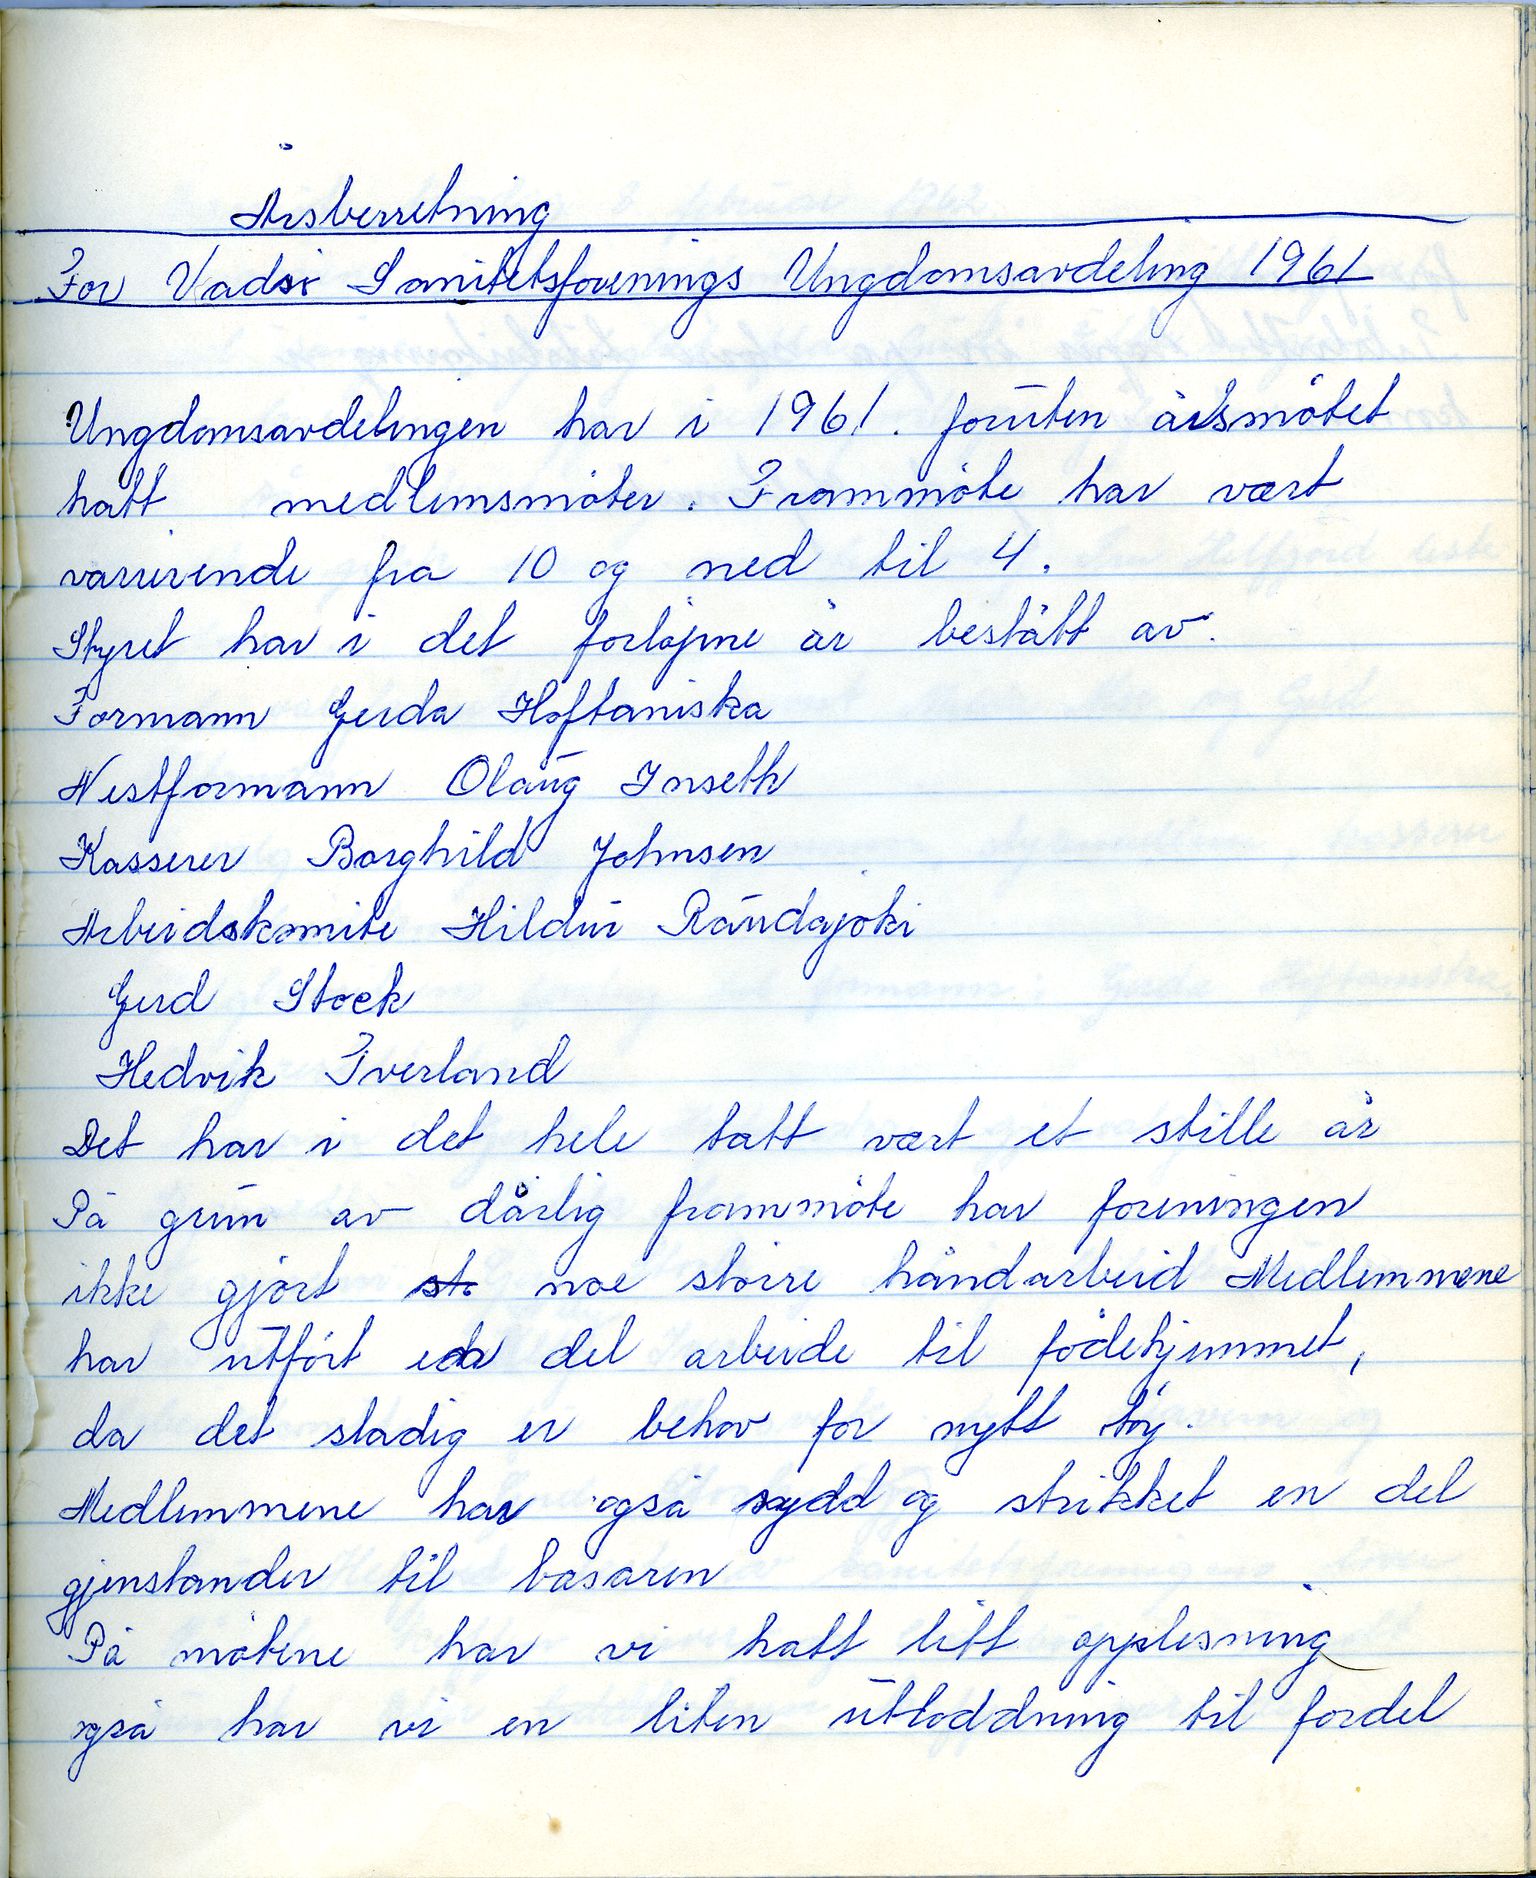 Årsberretning
For Vadsø Sanitetsforenings Ungdomsavdeling 1961
Ungdomsavdelingen har i 1961. foruten årsmötet
hatt medlemsmöter. Frammöte har vært
varrierende fra 10 og ned til 4.
Styret har i det forløpne år bestått av.
Formann Gerda Hoftaniska
Nestformann Olaug Inseth
Kasserer Borghild Johnsen
Arbeidskomite Hildur Raudajoki
Gerd Stock
Hedvik Iverland
Det har i det hele tatt vært et stille år
På grun av dårlig frammöte har foreningen
ikke gjört st. noe större håndarbeid Medlemmene
har utfört en del arbeide til födehjemmet,
da det stadig er behov for nytt töy.
Medlemmene har også sydd og strikket en del
gjenstander til basaren
På mötene har vi hatt litt opplesning
også har vi en liten utloddning til fordel